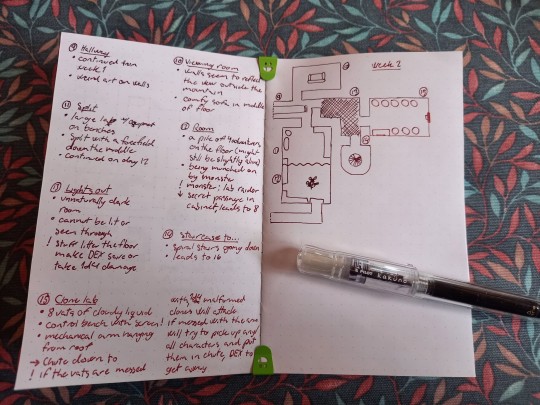 ⑨ Hallway
• continued from
week 1
• weird art on walls
⑪ Split
• large lab equipment
on benches
• split with a forcefield
down the middle
• continued on day 12
⑬ Lights out
• unnaturally dark
room
• cannot be lit or
seen through
! stuff litter the floor
make DEX save or
take 1d4 damage
⑮ Clone lab
• 8 vats of cloudy liquid
• control bench with screen!
• mechanical arm hanging
from roof
→ Chute down to
! if the vats are messed
⑩ Viewing room
• walls seem to reflect
the view outside the
mountain
• comfy sofa in middle
of floor
⑫ Room
• a pile of
on the floor (might
still be slightly alive)
• being munched on
by monster
! monster: lab raider
↓ secret passage in
cabinet, leads to 8
⑭ staircase to...
• spiral stairs going down
• leads to 16
with, malformed
clones will attack
if messed with the arm
will try to pick up any/
all characters and put
them in chute, DEX to
get away
week 2